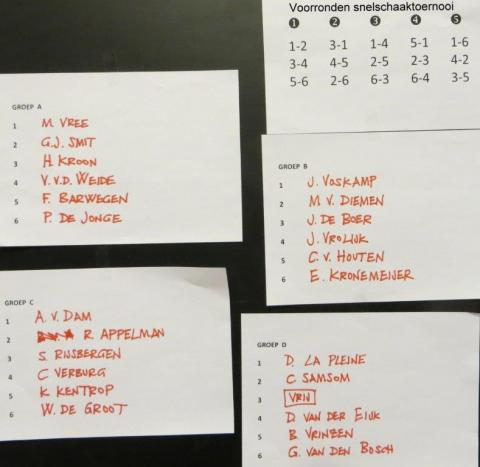 Voorronden snelschaaktoernooi
1 2 3 4 5
1-2 3-1 1-4 5-1 1-6
3-4 4-5 2-5 2-3 4-2
5-6 2-6 6-3 6-4 3-5
GROEP A
1 M. VREE
2 G.J. SMIT
3 H. KROON
4 V. V.D. WEIDE
5 F. BARWEGEN
6 P. DE JONGE
GROEP B
1 J. VOSKAMP
2 M. V. DIEMEN
3 J. DE BOER
4 J. VROLIJK
5 C. V. HOUTEN
6 E. KRONEMEIJER
GROEP C
1 A. V. DAM
2 R. APPELMAN
3 S. RIJSBERGEN
4 C VERBURG
5 K. KENTROP
6 W. DE GROOT
GROEP D
1 D. LA PLEINE
2 C SAMSOM
3 VRIJ
4 D. VAN DER EIJK
5 B. VRINZEN
6 G. VAN DEN BOSCH